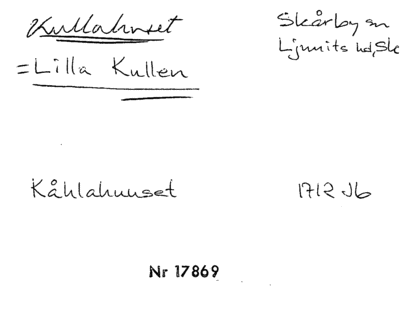 Kullahuset
Skårby sn
Ljunits hd, Sk
= Lilla Kullen
Kåhlahuuset 1712 Jb
Nr 17869